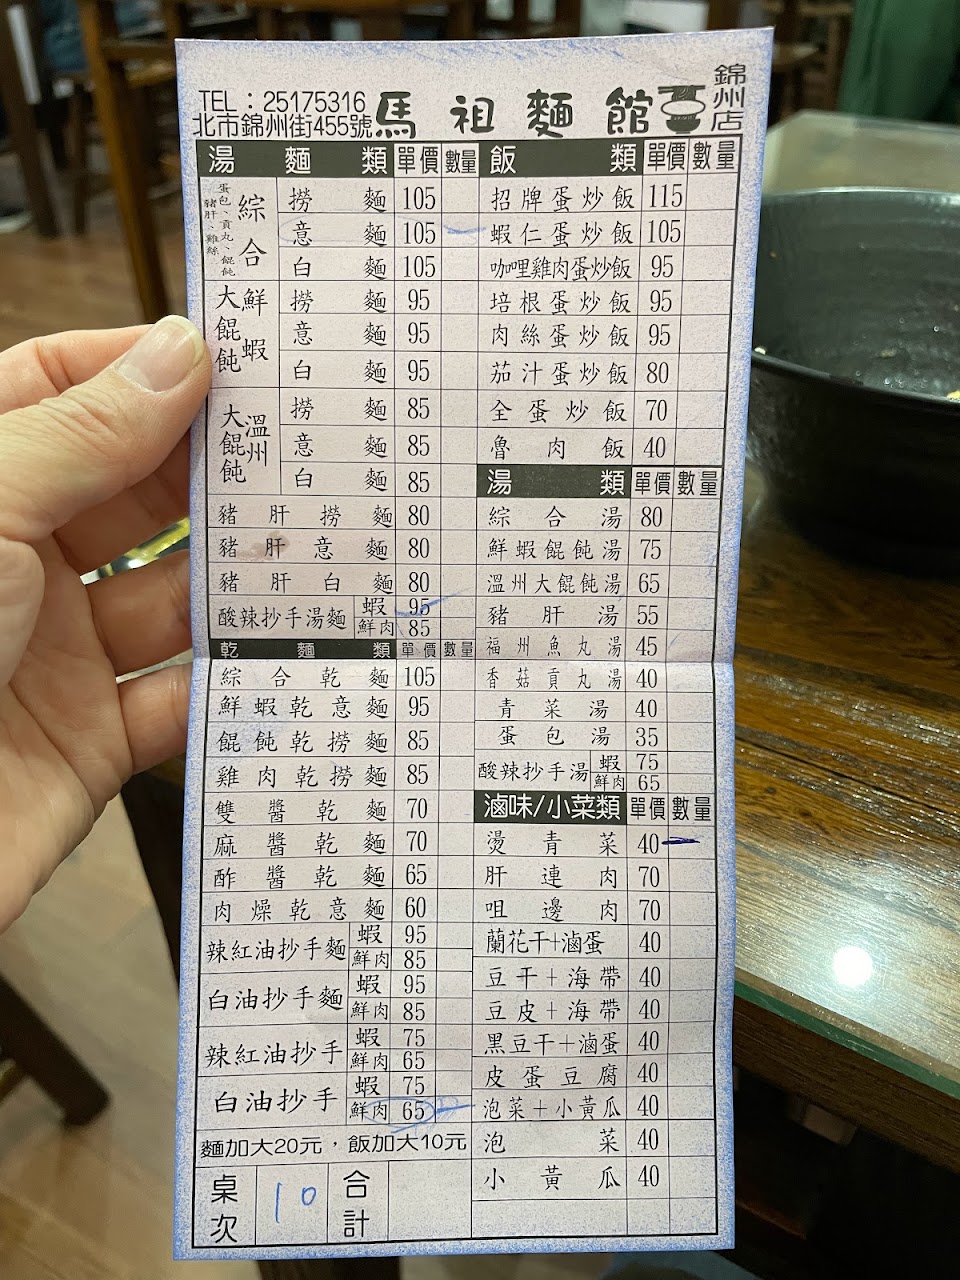 TEL：25175316
北市錦州街455號
馬祖麵館
錦州店
湯麵類 單價 數量
綜合
蛋包、貢丸、餛飩
豬肝、雞絲
撈麵 105
意麵 105
白麵 105
鮮蝦大餛飩
撈麵 95
意麵 95
白麵 95
溫州大餛飩
撈麵 85
意麵 85
白麵 85
豬肝撈麵 80
豬肝意麵 80
豬肝白麵 80
酸辣抄手湯麵
蝦 95
鮮肉 85
乾麵類 單價 數量
綜合乾麵 105
鮮蝦乾意麵 95
餛飩乾撈麵 85
雞肉乾撈麵 85
雙醬乾麵 70
麻醬乾麵 70
酢醬乾麵 65
肉燥乾意麵 60
辣紅油抄手麵
蝦 95
鮮肉 85
白油抄手麵
蝦 95
鮮肉 85
辣紅油抄手
蝦 75
鮮肉 65
白油抄手
蝦 75
鮮肉 65
麵加大20元，飯加大10元
桌次 10 合計
飯類 單價 數量
招牌蛋炒飯 115
蝦仁蛋炒飯 105
咖哩雞肉蛋炒飯 95
培根蛋炒飯 95
肉絲蛋炒飯 95
茄汁蛋炒飯 80
全蛋炒飯 70
魯肉飯 40
湯類 單價 數量
綜合湯 80
鮮蝦餛飩湯 75
溫州大餛飩湯 65
豬肝湯 55
福州魚丸湯 45
香菇貢丸湯 40
青菜湯 40
蛋包湯 35
酸辣抄手湯
蝦 75
鮮肉 65
滷味/小菜類 單價 數量
燙青菜 40
肝連肉 70
咀邊肉 70
蘭花干+滷蛋 40
豆干+海帶 40
豆皮+海帶 40
黑豆干+滷蛋 40
皮蛋豆腐 40
泡菜+小黃瓜 40
泡菜 40
小黃瓜 40